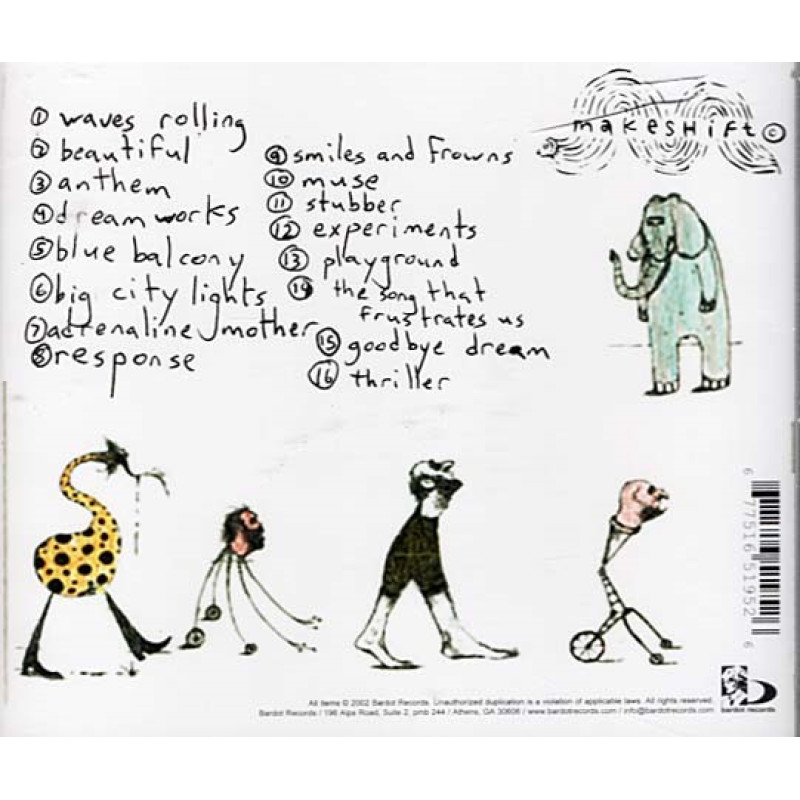 ① waves rolling
② beautiful
③ anthem
④ dream works
⑤ blue balcony
⑥ big city lights
⑦ adrenaline mother
⑧ response
⑨ smiles and frowns
⑩ muse
⑪ stubber
⑫ experiments
⑬ playground
⑭ the song that
frustrates us
⑮ goodbye dream
⑯ thriller
makeSHift ©
6 77516 51952 6
All items © 2002 Bardot Records. Unauthorized duplication is a violation of applicable laws. All rights reserved.
Bardot Records / 196 Alps Road, Suite 2, pmb 244 / Athens, GA 30606 / www.bardotrecords.com / info@bardotrecords.com
bardot records